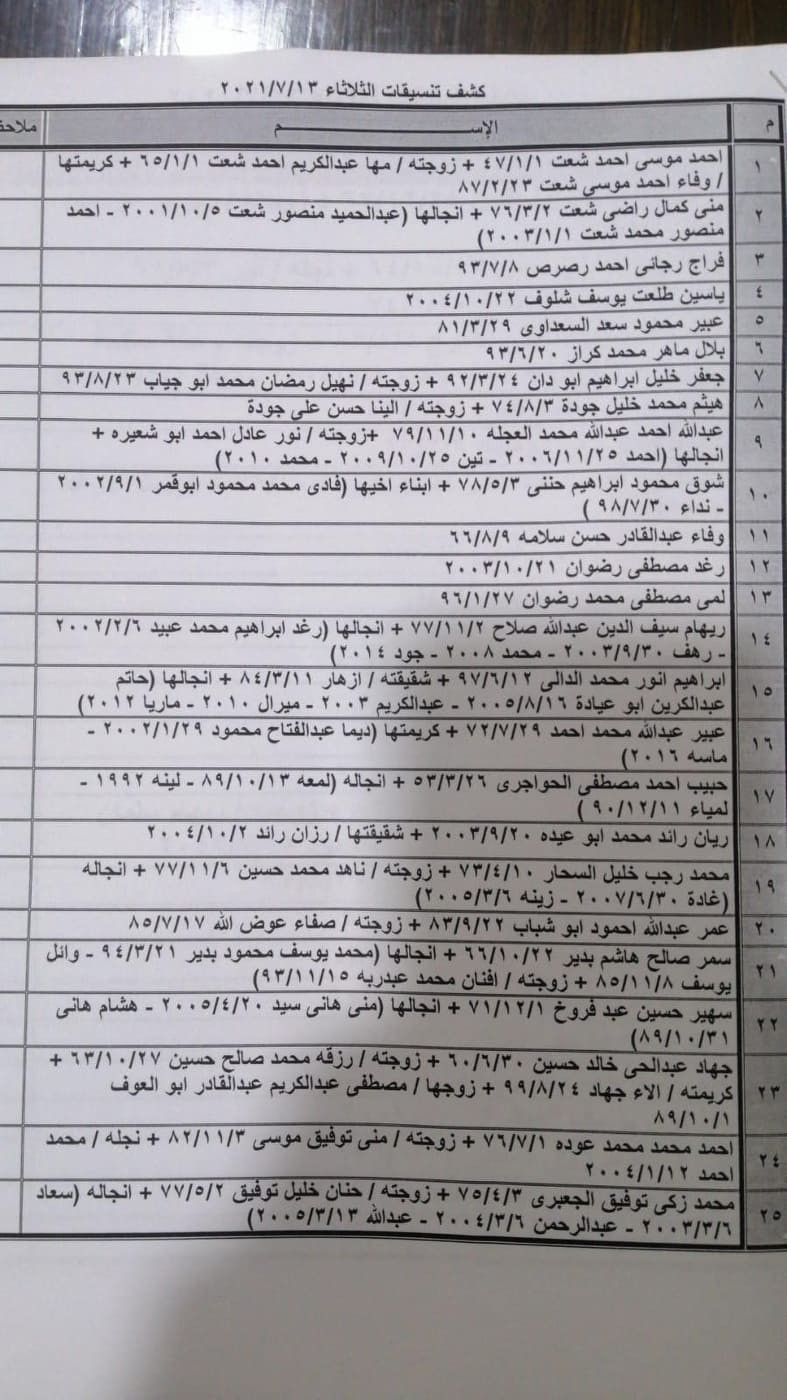 كشف تنسيقات الثلاثاء ٢٠٢١/٧/١٣
م الإســـــم ملاحظ
١ احمد موسى احمد شعت ٤٧/١/١ + زوجته / مها عبدالكريم احمد شعت ٦٥/١/١ + كريمتها
/ وفاء احمد موسى شعت ٨٧/٢/٢٣
٢ منى كمال راضى شعت ٧٦/٣/٢ + انجالها (عبدالحميد منصور شعت ٢٠٠١/١٠/٥ - احمد
منصور محمد شعت ٢٠٠٣/١/١)
٣ فراج رجائى احمد رصرص ٩٣/٧/٨
٤ ياسين طلعت يوسف شلوف ٢٠٠٤/١٠/٢٢
٥ عبير محمود سعد السعداوى ٨١/٣/٢٩
٦ بلال ماهر محمد كراز ٩٣/٦/٢٠
٧ جعفر خليل ابراهيم ابو دان ٩٢/٣/٢٤ + زوجته / نهيل رمضان محمد ابو جياب ٩٣/٨/٢٣
٨ هيثم محمد خليل جودة ٧٤/٨/٣ + زوجته / الينا حسن علي جودة
٩ عبدالله احمد عبدالله محمد العجله ٧٩/١١/١٠ +زوجته / نور عادل احمد ابو شعيره +
انجالها (احمد ٢٠٠٦/١١/٢٥ - تين ٢٠٠٩/١٠/٢٥ - محمد ٢٠١٠)
١٠ شوق محمود ابراهيم حننى ٧٨/٥/٣ + ابناء اخيها (فادى محمد محمود ابوقمر ٢٠٠٢/٩/١
- نداء ٩٨/٧/٣٠ )
١١ وفاء عبدالقادر حسن سلامه ٦٦/٨/٩
١٢ رغد مصطفى رضوان ٢٠٠٣/١٠/٢١
١٣ لمى مصطفى محمد رضوان ٩٦/١/٢٧
١٤ ريهام سيف الدين عبدالله صلاح ٧٧/١١/٢ + انجالها (رغد ابراهيم محمد عبيد ٢٠٠٢/٢/٦
- رهف ٢٠٠٣/٩/٣٠ - محمد ٢٠٠٨ - جود ٢٠١٤)
١٥ ابراهيم انور محمد الدالى ٩٧/٦/١٢ + شقيقته / ازهار ٨٤/٣/١١ + انجالها (حاتم
عبدالكرين ابو عيادة ٢٠٠٥/٨/١٦ - عبدالكريم ٢٠٠٣ - ميرال ٢٠١٠ - ماريا ٢٠١٢)
١٦ عبير عبدالله محمد احمد ٧٢/٧/٢٩ + كريمتها (ديما عبدالفتاح محمود ٢٠٠٢/١/٢٩ -
ماسه ٢٠١٦)
١٧ حبيب احمد مصطفى الحواجرى ٥٣/٣/٢٦ + انجاله (لمعه ٨٩/١٠/١٣ - لينه ١٩٩٢ -
لمياء ٩٠/١٢/١١ )
١٨ ريان رائد محمد ابو عيده ٢٠٠٣/٩/٢٠ + شقيقتها / رزان رائد ٢٠٠٤/١٠/٢
١٩ محمد رجب خليل السحار ٧٣/٤/١٠ + زوجته / ناهد محمد حسين ٧٧/١١/٦ + انجاله
(غادة ٢٠٠٧/٦/٣٠ - زينه ٢٠٠٥/٣/٦)
٢٠ عمر عبدالله احمود ابو شباب ٨٣/٩/٢٢ + زوجته / صفاء عوض الله ٨٥/٧/١٧
٢١ سمر صالح هاشم بدير ٦٦/١٠/٢٢ + انجالها (محمد يوسف محمود بدير ٩٤/٣/٢١ - وائل
يوسف ٨٥/١١/٨ + زوجته / افنان محمد عبدربه ٩٣/١١/١٥)
٢٢ سهير حسين عبد فروخ ٧١/١٢/١ + انجالها (منى هانى سيد ٢٠٠٥/٤/٢٠ - هشام هانى
٨٩/١٠/٣١)
٢٣ جهاد عبدالحى خالد حسين ٦٠/٦/٣٠ + زوجته / رزقه محمد صالح حسين ٦٣/١٠/٢٧ +
كريمته / الاء جهاد ٩٩/٨/٢٤ + زوجها / مصطفى عبدالكريم عبدالقادر ابو العوف
٨٩/١٠/١
٢٤ احمد محمد محمد عوده ٧٦/٧/١ + زوجته / منى توفيق موسى ٨٢/١١/٣ + نجله / محمد
احمد ٢٠٠٤/١/١٢
٢٥ محمد زكى توفيق الجعبرى ٧٥/٤/٣ + زوجته / حنان خليل توفيق ٧٧/٥/٢ + انجاله (سعاد
٢٠٠٣/٣/٦ - عبدالرحمن ٢٠٠٤/٣/٦ - عبدالله ٢٠٠٥/٣/١٣)